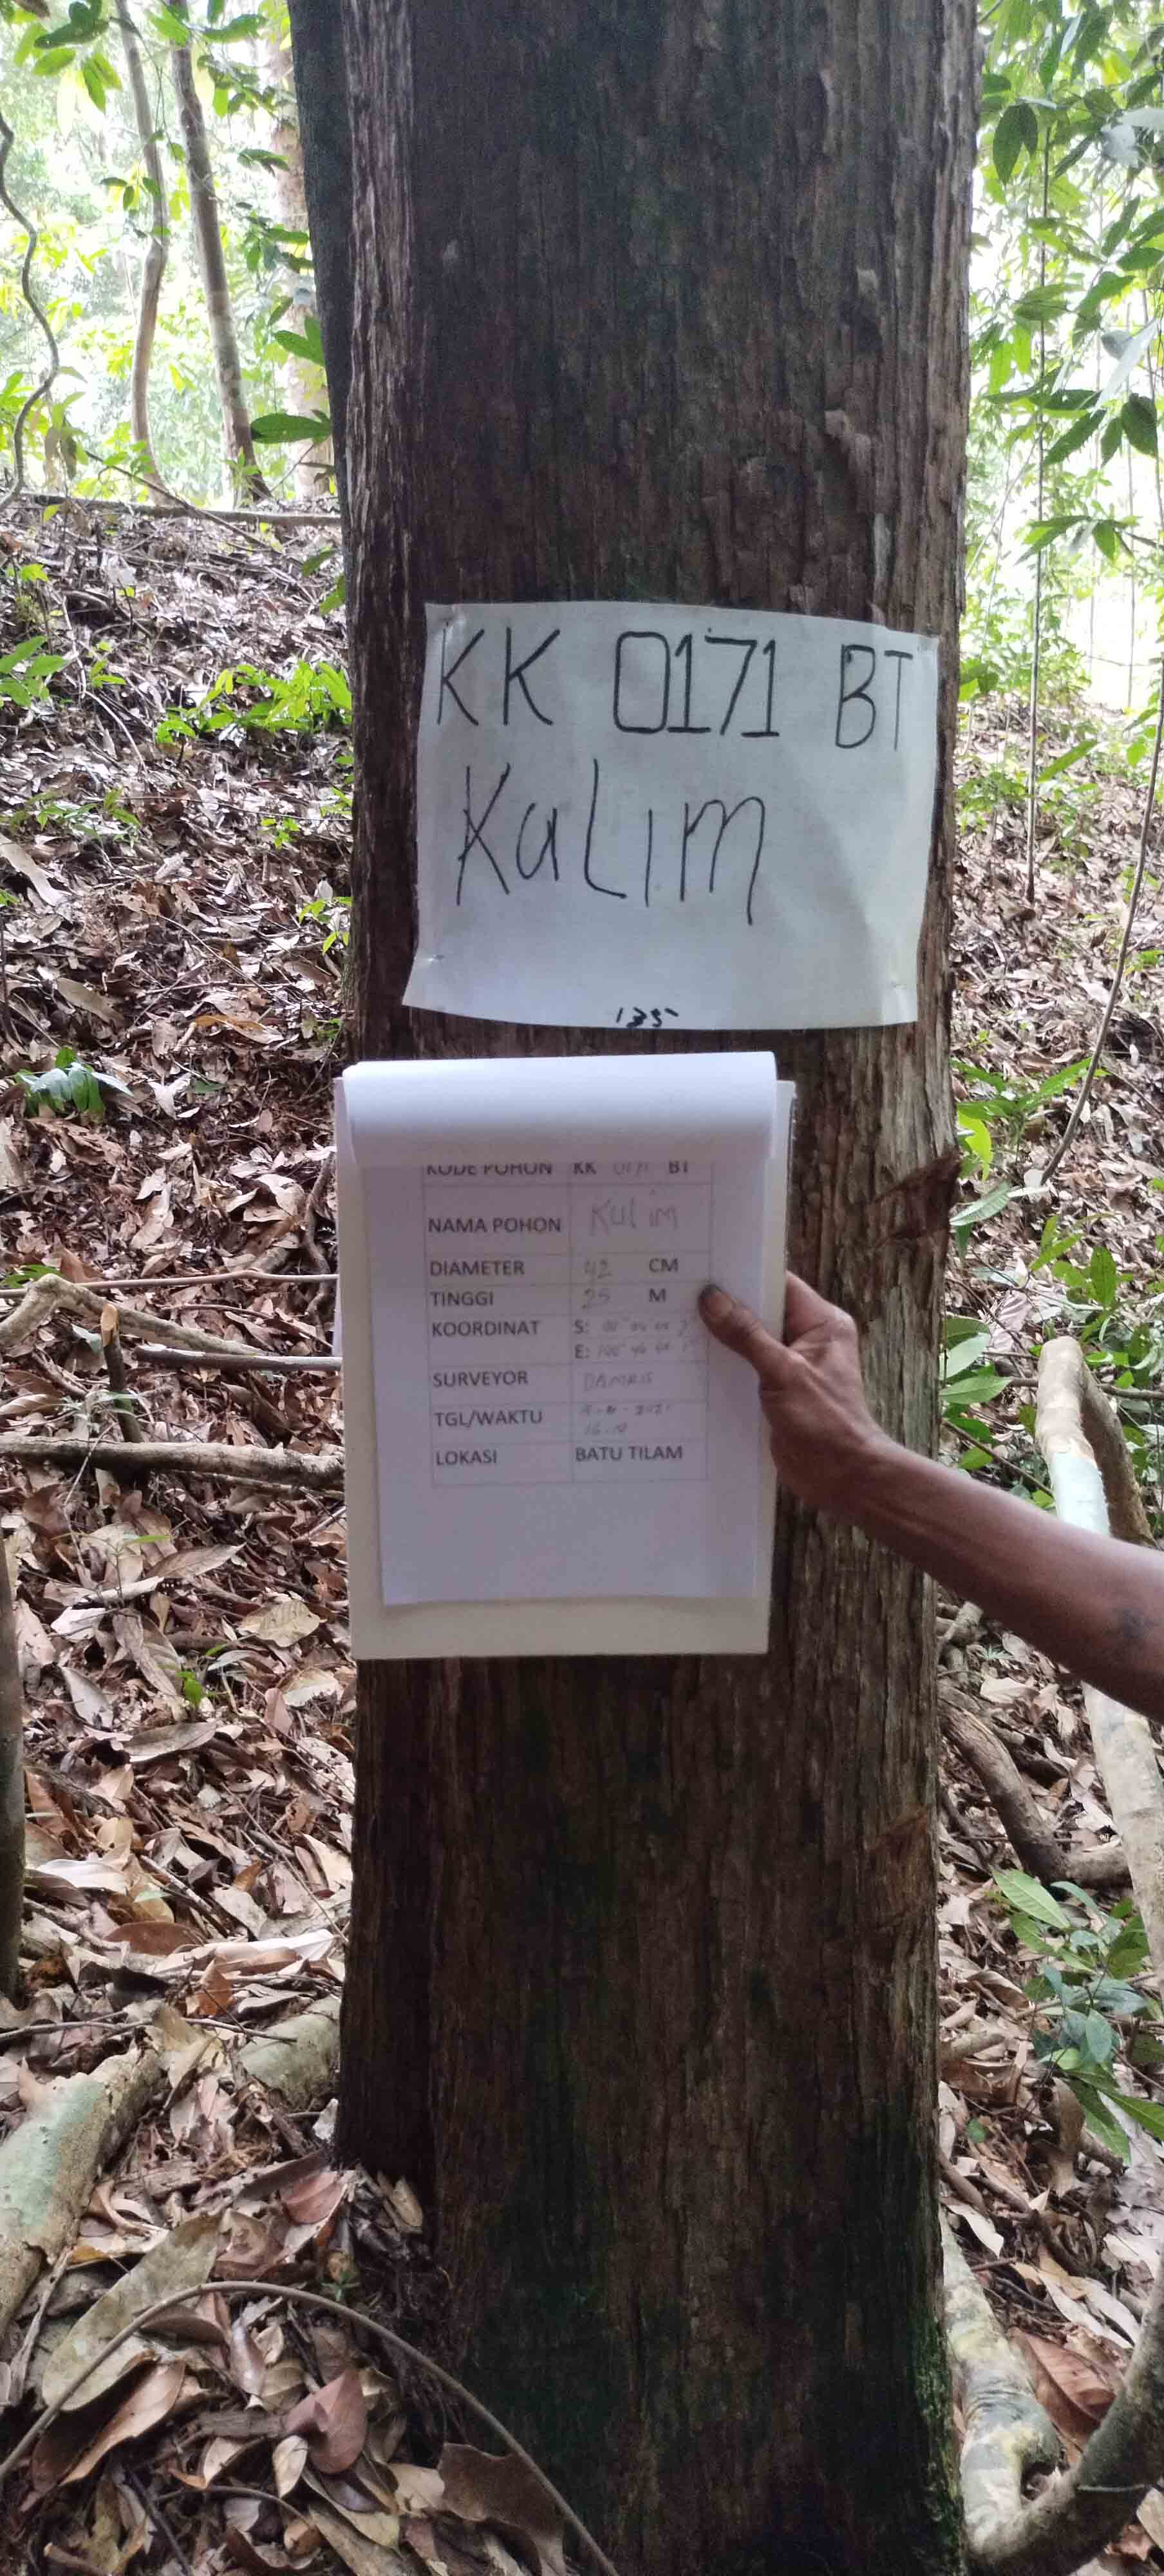 KK 0171 BT
KuLim
135
KODE POHON KK 0171 BT
NAMA POHON KuLim
DIAMETER 42 CM
TINGGI 25 M
KOORDINAT S:
E:
SURVEYOR DAMRIS
TGL/WAKTU
LOKASI BATU TILAM